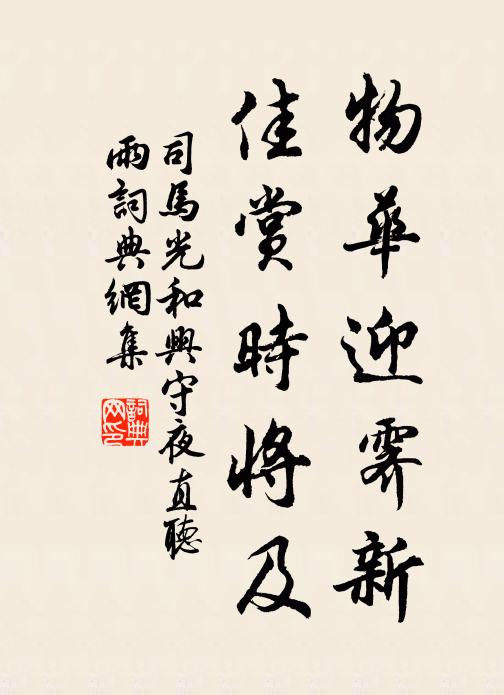 物華迎霽新
佳賞時將及
司馬光和興守夜直聽
雨詞典網集
詞典
网印